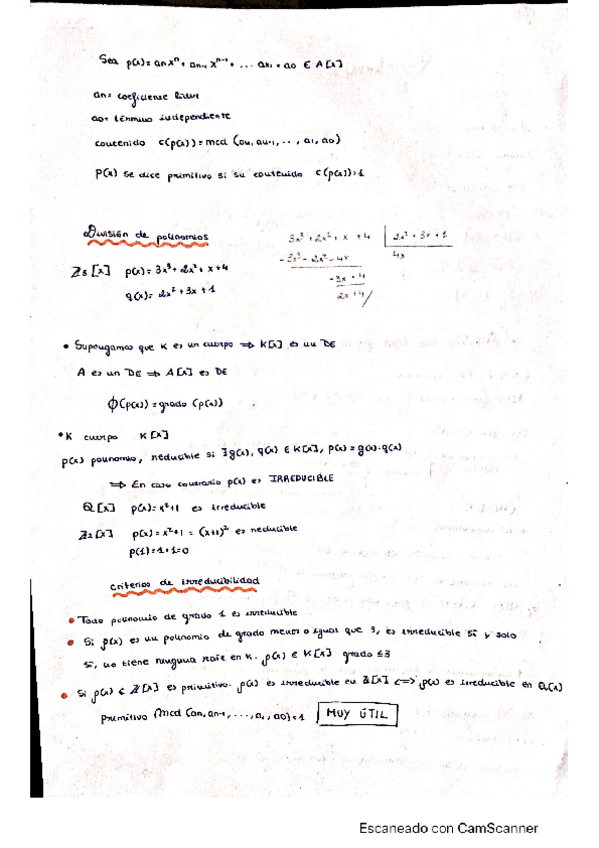 Sea p(x)= anxⁿ + an-1 xⁿ⁻¹ + ... ax1 + a0 ∈ A[x]
an= coeficiente líder
a0= término independiente
contenido c(p(x))=mcd (an, an-1, .., a1, a0)
p(x) se dice primitivo si su contenido c(p(x))=1
División de polinomios
Z5 [x] p(x)= 3x³+ 2x²+ x+4
q(x)= 2x²+3x+1
3x³ +2x²+ x +4 | 2x²+3x+1
-3x³- 2x²-4x 4x
-3x +4
2x+4/
• Supongamos que K es un cuerpo ⇒ K[x] es un DE
A es un DE ⇒ A[x] es DE
ϕ(p(x))=grado (p(x))
*K cuerpo K[x]
p(x) polinomio, reducible si ∃ g(x), q(x) ∈ K[x], p(x)= g(x)·q(x)
⇒ En caso contrario p(x) es IRREDUCIBLE
Q[x] p(x)=x²+1 es irreducible
Z2[x] p(x)=x²+1 = (x+1)² es reducible
p(1)=1+1=0
criterios de irreducibilidad
• Todo polinomio de grado 1 es irreducible
• Si p(x) es un polinomio de grado menor o igual que 3, es irreducible si y solo
si, no tiene ninguna raíz en K. p(x) ∈ K[x] grado ≤3
• Si p(x) ∈ Z[x] es primitivo. p(x) es irreducible en Z[x] <=> p(x) es irreducible en Q[x]
primitivo (mcd (an, an-1, ..., a1, a0)=1 MUY ÚTIL
Escaneado con CamScanner